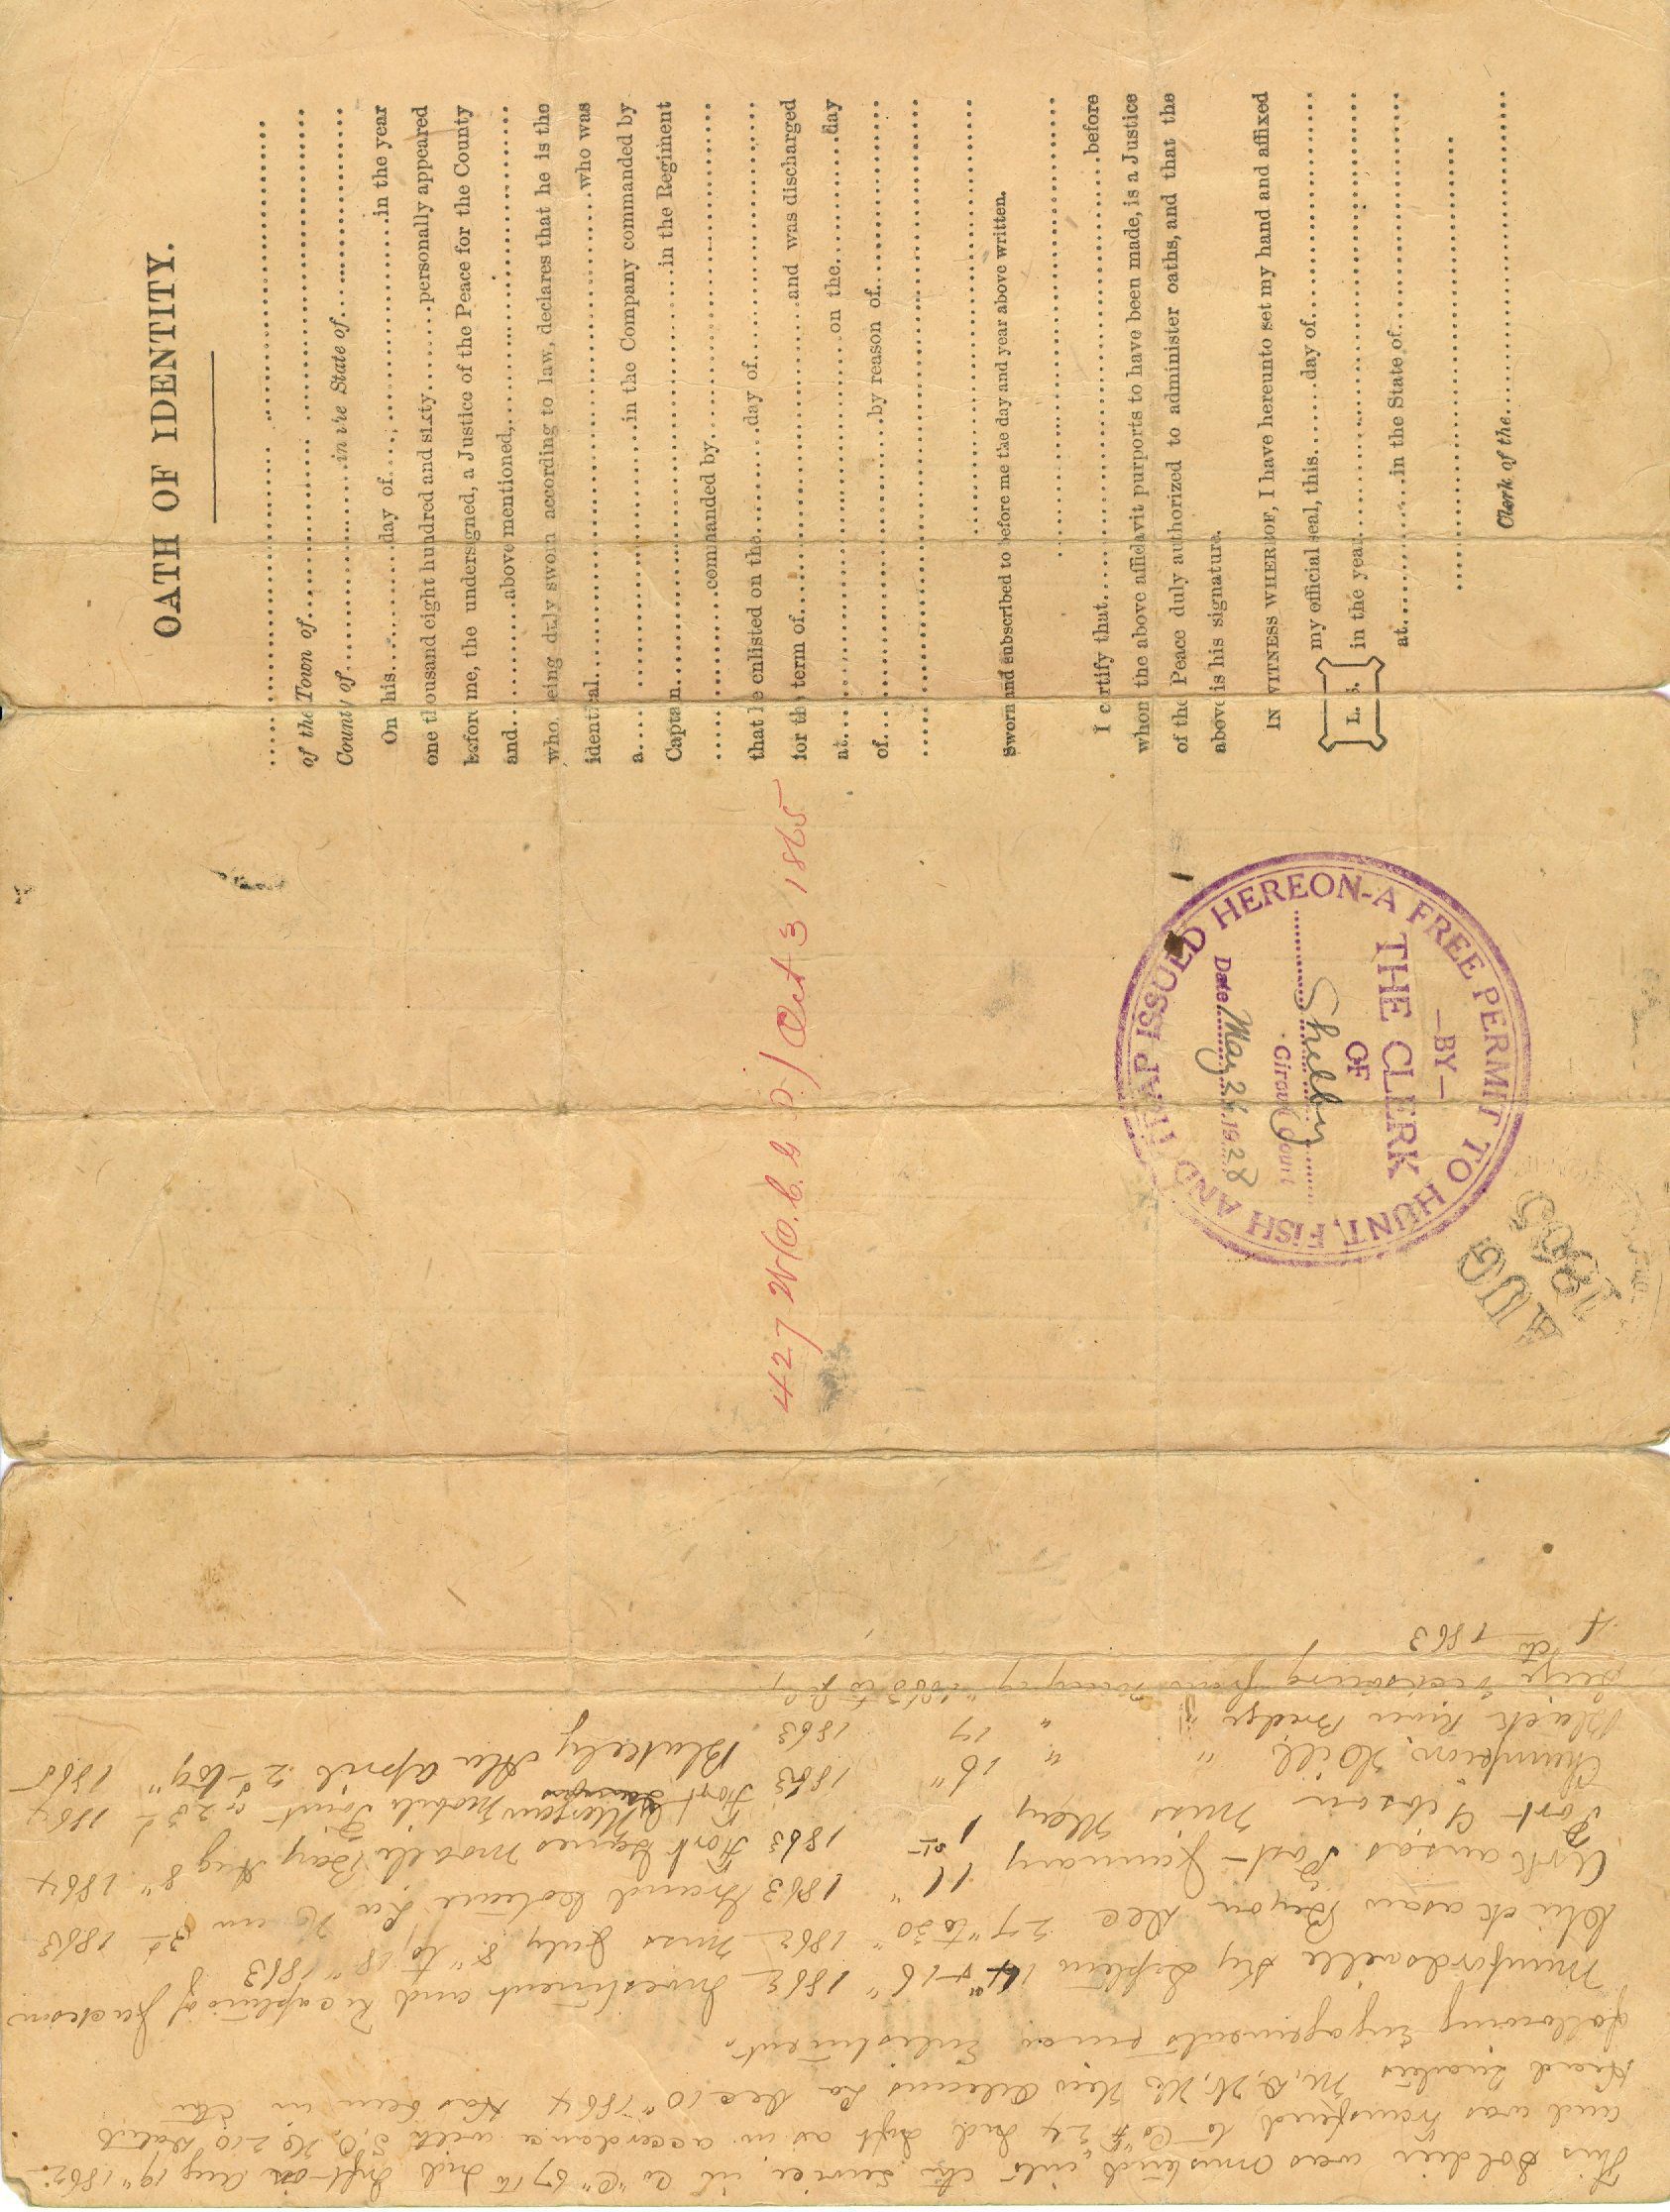 OATH OF IDENTITY.
of the Town of
County of in the State of
On this day of in the year
one thousand eight hundred and sixty personally appeared
before me, the undersigned, a Justice of the Peace for the County
and above mentioned,
who being duly sworn according to law, declares that he is the
identical who was
a in the Company commanded by
Captain in the Regiment
commanded by
that he enlisted on the day of
for the term of and was discharged
at on the day
of by reason of
Sworn and subscribed to before me the day and year above written.
I certify that before
whom the above affidavit purports to have been made, is a Justice
of the Peace duly authorized to administer oaths, and that the
above is his signature.
IN WITNESS WHEREOF, I have hereunto set my hand and affixed
my official seal, this day of
L. S. in the year
at in the State of
Clerk of the
427 Oct 3 1865
A FREE PERMIT TO HUNT, FISH AND TRAP ISSUED HEREON
—BY—
THE CLERK
OF
Shelby
Circuit Court
Date May 26 1928
AUG
1865
This Soldier was mustered into the Service in Co "C" 67th Ind Inft on Aug 19" 1862
and was transfered to Co 24 Ind Inft as in accordance with S.O. No 210 dated
Head Quarters New Orleans La Dec 10" 1864 Has been in the
following Engagements since Enlistment.
Munfordsville Ky 14 & 16" 1862
Chickasaw Bayou Dec 27" to 30" 1862
Arkansas Post January 11" 1863
Port Gibson Miss May 1st 1863
Champion Hill " " 16" 1863
Black River Bridge " " 17 1863
Seige Vicksburg from 1863 to July
4 1863
Investment and Recapture of Jackson
Miss July 8" to 18" 1863
Grand Coteau La 3d 1863
Fort Gaines Mobile Bay Aug 8" 1864
Fort Morgan Mobile Point " 23d 1864
Blakely Ala April 2 to 9" 1865